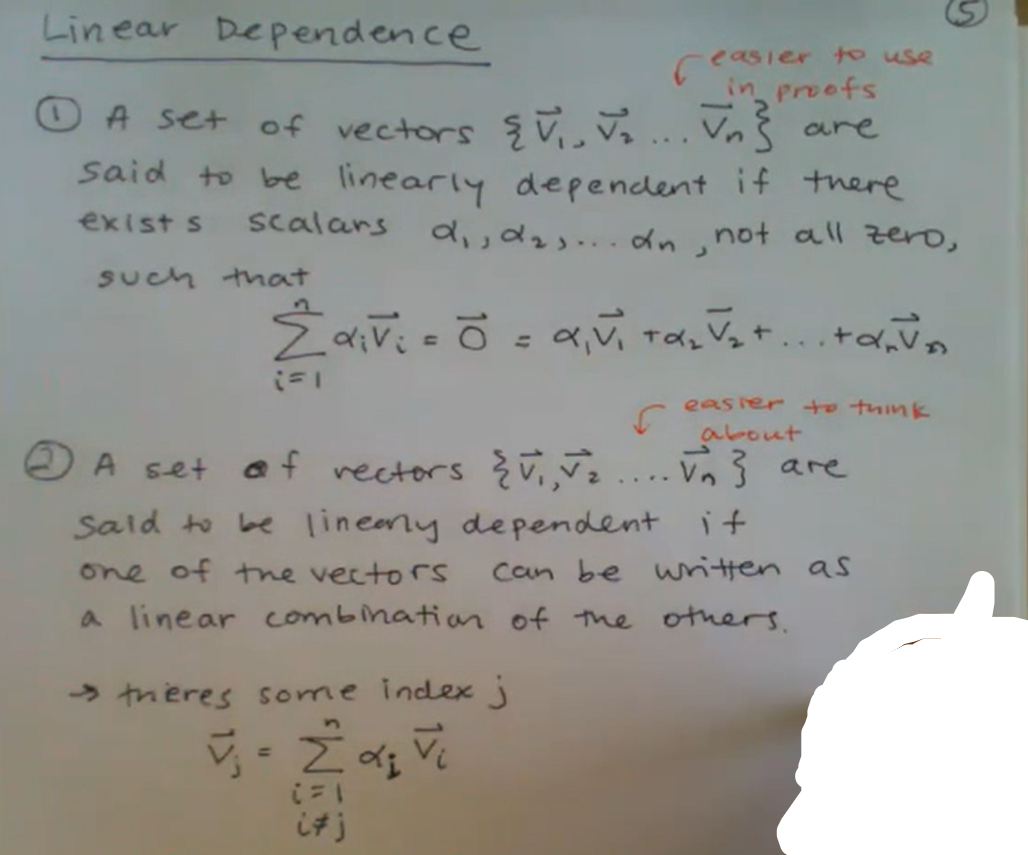 ⑤
Linear Dependence
easier to use
in proofs
① A set of vectors {v⃗₁, v⃗₂ ... v⃗ₙ} are
said to be linearly dependent if there
exists scalars α₁, α₂, ... αₙ, not all zero,
such that
∑ᵢ₌₁ⁿ αᵢv⃗ᵢ = 0⃗ = α₁v⃗₁ + α₂v⃗₂ + ... + αₙv⃗ₙ
easier to think
about
② A set of vectors {v⃗₁, v⃗₂ .... v⃗ₙ} are
said to be linearly dependent if
one of the vectors can be written as
a linear combination of the others.
→ theres some index j
v⃗ⱼ = ∑ⁿ αᵢ v⃗ᵢ
i=1
i≠j